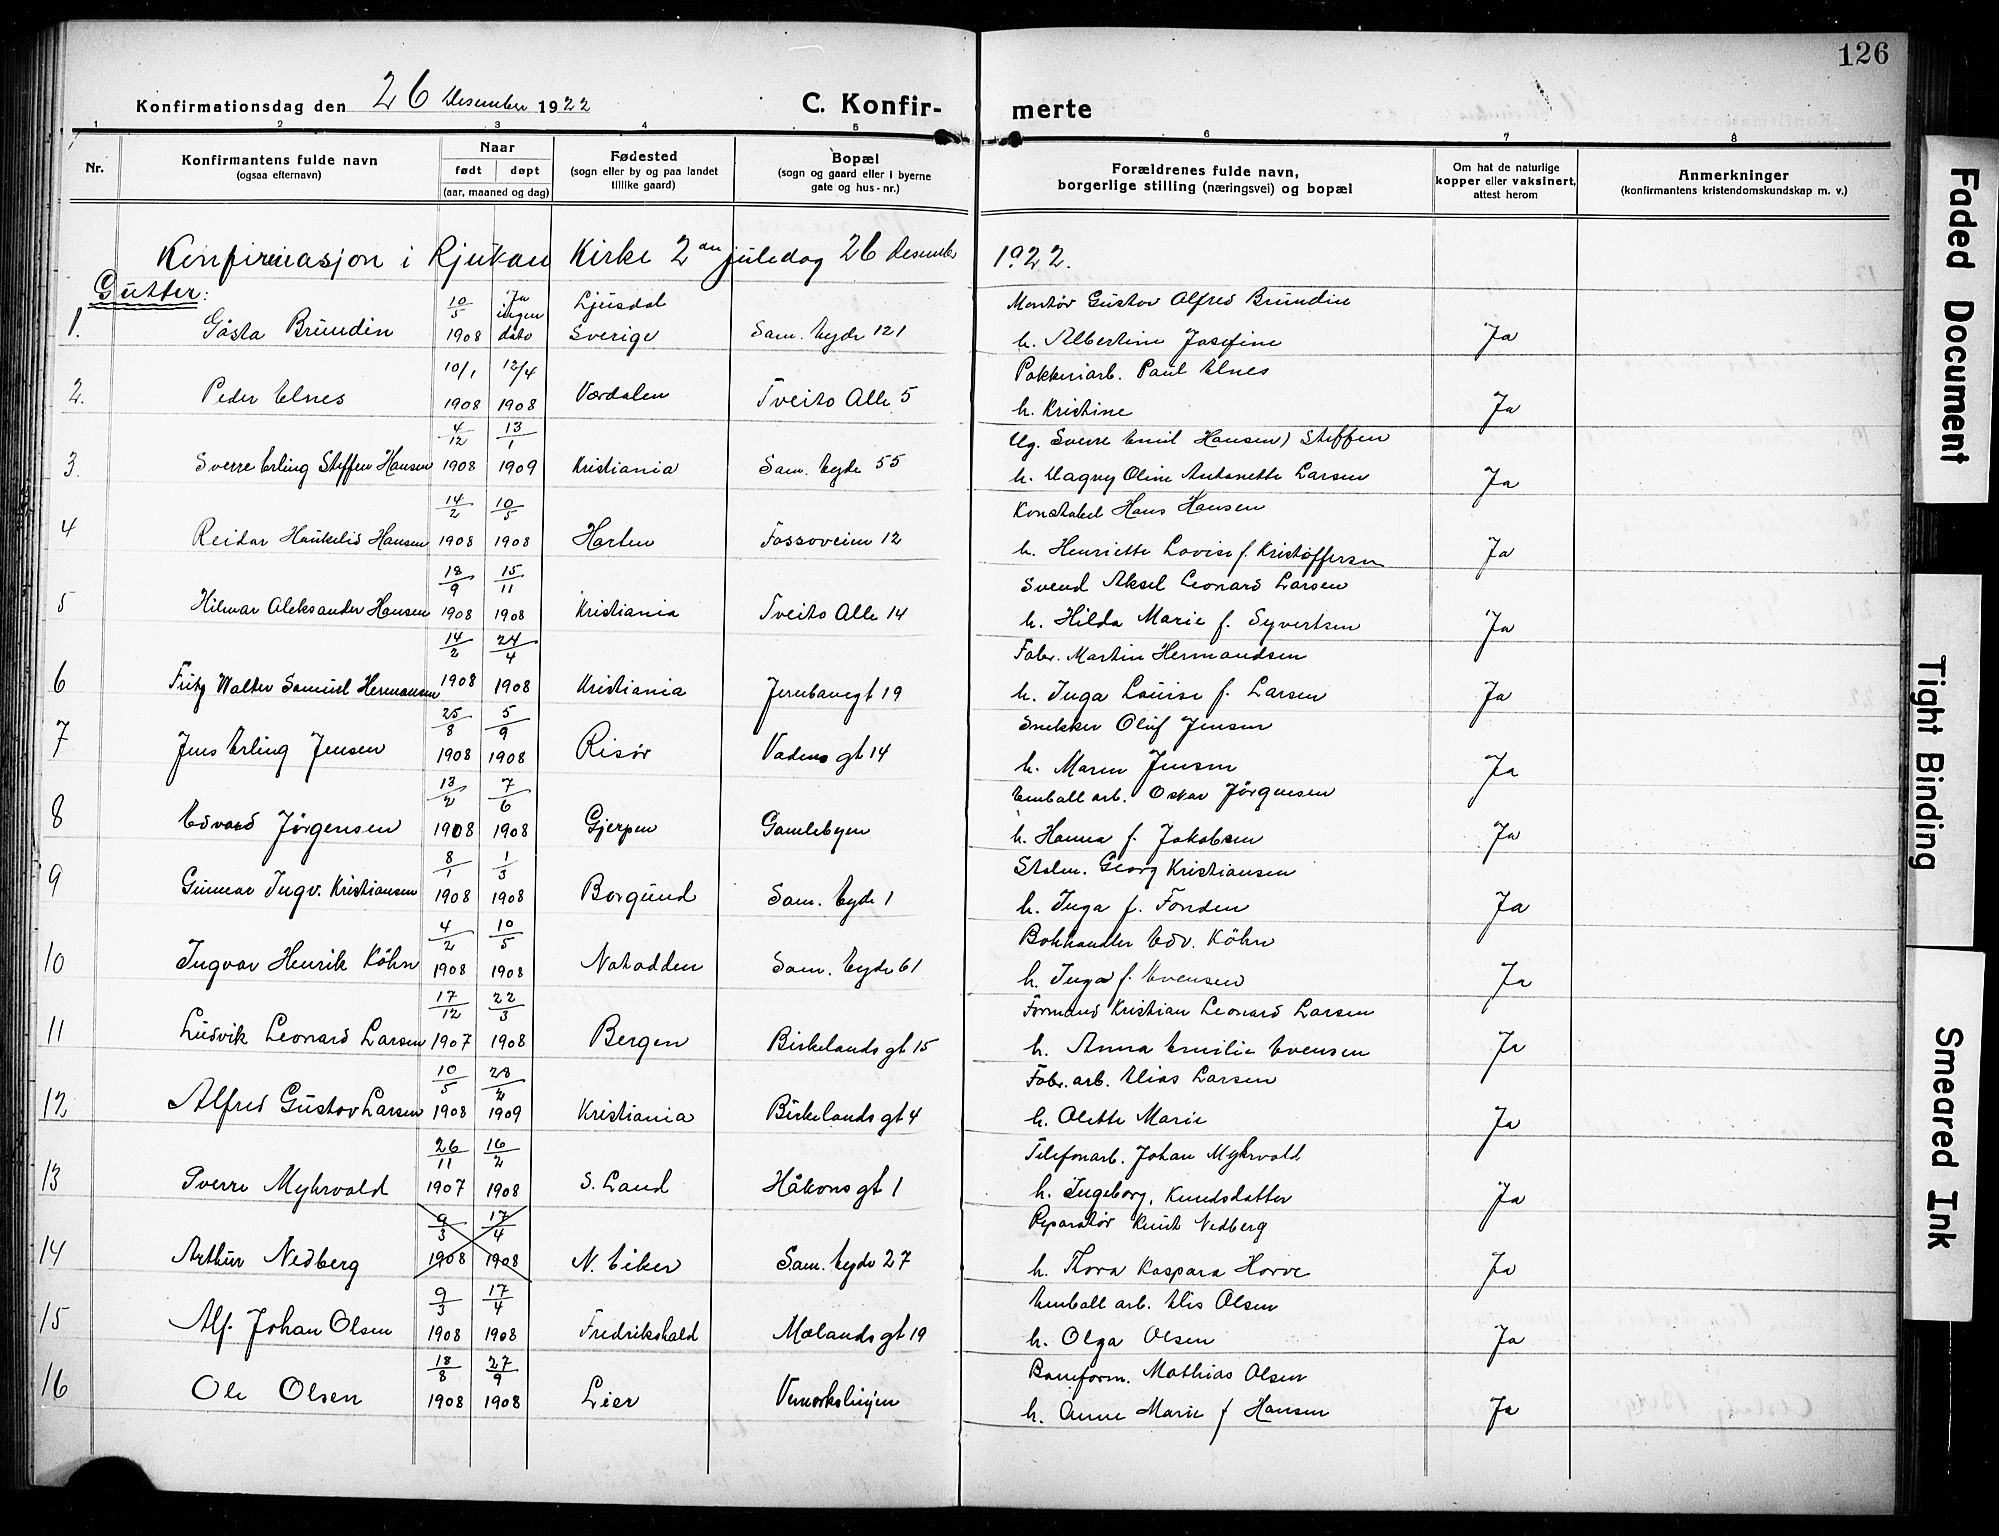 126
Konfirmationsdag den 26 Desember 1922
C. Konfir- merte
1 2 3 4 5 6 7 8
Nr. Konfirmantens fulde navn (ogsaa efternavn) Naar født døpt (aar, maaned og dag) Fødested (sogn eller by og paa landet tillike gaard) Bopæl (sogn og gaard eller i byerne gate og hus-nr.) Forældrenes fulde navn, borgerlige stilling (næringsvei) og bopæl Om hat de naturlige kopper eller vaksinert, attest herom Anmerkninger (konfirmantens kristendomskundskap m. v.)
Konfirmasjon i Rjukan Kirke 2an juledag 26 Desember 1922.
Gutter:
1. Gösta Brundin 10/5 1908 Ja ingen dato Ljusdal Sverige Sam. Eyde 121 Montør Gustav Alfred Brundin h. Albertine Josefine Ja
2. Peder Elnes 10/1 1908 12/4 1908 Værdalen Tveito Alle 5 Pakkeriarb. Paul Elnes h. Kristine Ja
3. Sverre Erling Steffen Hansen 4/12 1908 13/1 1909 Kristiania Sam. Eyde 55 Ug. Sverre Emil Hansen) Steffen h. Magny Oline Antonette Larsen Ja
4 Reidar Haukelid Hansen 14/2 1908 10/5 1908 Horten Fossoveien 12 Konstabel Hans Hansen h. Henriette Lovise f. Kristoffersen Ja
5 Hilmar Aleksander Hansen 18/9 1908 15/11 1908 Kristiania Tveito Alle 14 Svend Aksel Leonard Larsen h. Hilda Marie f. Syvertsen Ja
6 Fritz Walter Samuel Hermansen 14/2 1908 24/4 1908 Kristiania Jernbanegt 19 Fabr. Martin Hermandsen h. Inga Louise f. Larsen Ja
7 Jens Erling Jensen 25/8 1908 5/9 1908 Risør Vadens gt 14 Snekker Oluf Jensen h. Maren Jensen Ja
8 Edvard Jörgensen 13/2 1908 7/6 1908 Gjerpen Gamlebyen Emball arb. Oskar Jörgensen h. Hanna f. Jakobsen Ja
9 Gunnar Ingv. Kristiansen 8/1 1908 1/3 1908 Borgund Sam. Eyde 1 Stolm. Georg Kristiansen h. Inga f. Fonden Ja
10 Ingvar Henrik Köhn 4/2 1908 10/5 1908 Notodden Sam. Eyde 61 Bokhandler Edv. Köhn h. Inga f. Evensen Ja
11 Ludvik Leonard Larsen 17/12 1907 22/3 1908 Bergen Birkelands gt 15 Formand Kristian Leonard Larsen h. Anna Emilie Evensen Ja
12 Alfred Gustav Larsen 10/5 1908 28/2 1909 Kristiania Birkelands gt 4 Fabr. arb. Elias Larsen h. Olette Marie Ja
13 Sverre Myhrvold 26/11 1907 16/2 1908 S. Land Håkons gt 1 Telefonarb. Johan Myhrvold h. Ingeborg, Knudsdatter Ja
14 Arthur Nedberg 9/3 1908 17/4 1908 N. Eiker Sam. Eyde 27 Reparatør Knut Nedberg h. Thora Kaspara Horve Ja
15 Alf. Johan Olsen 9/3 1908 17/4 1908 Fredrikshald Mælands gt 19 Emball arb. Elis Olsen h. Olga Olsen Ja
16 Ole Olsen 18/8 1908 27/9 1908 Lier Vemorkslinjen Baneform. Mathias Olsen h. Anne Marie f Hansen Ja
Faded Document
Tight Binding
Smeared Ink